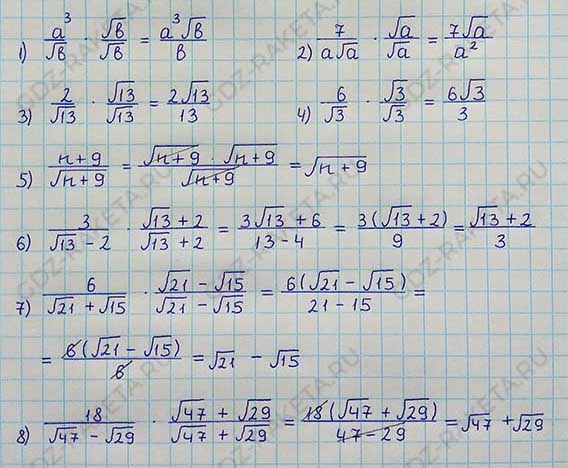 1) a³/√b · √b/√b = a³√b/b
2) 7/a√a · √a/√a = 7√a/a²
3) 2/√13 · √13/√13 = 2√13/13
4) 6/√3 · √3/√3 = 6√3/3
5) n+9/√n+9 = √n+9 · √n+9/√n+9 = √n+9
6) 3/√13 - 2 · √13 + 2/√13 + 2 = 3√13 + 6/13 - 4 = 3(√13 + 2)/9 = √13 + 2/3
7) 6/√21 + √15 · √21 - √15/√21 - √15 = 6(√21 - √15)/21 - 15 =
= 6(√21 - √15)/6 = √21 - √15
8) 18/√47 - √29 · √47 + √29/√47 + √29 = 18(√47 + √29)/47 - 29 = √47 + √29
GDZ-RAKETA.RU